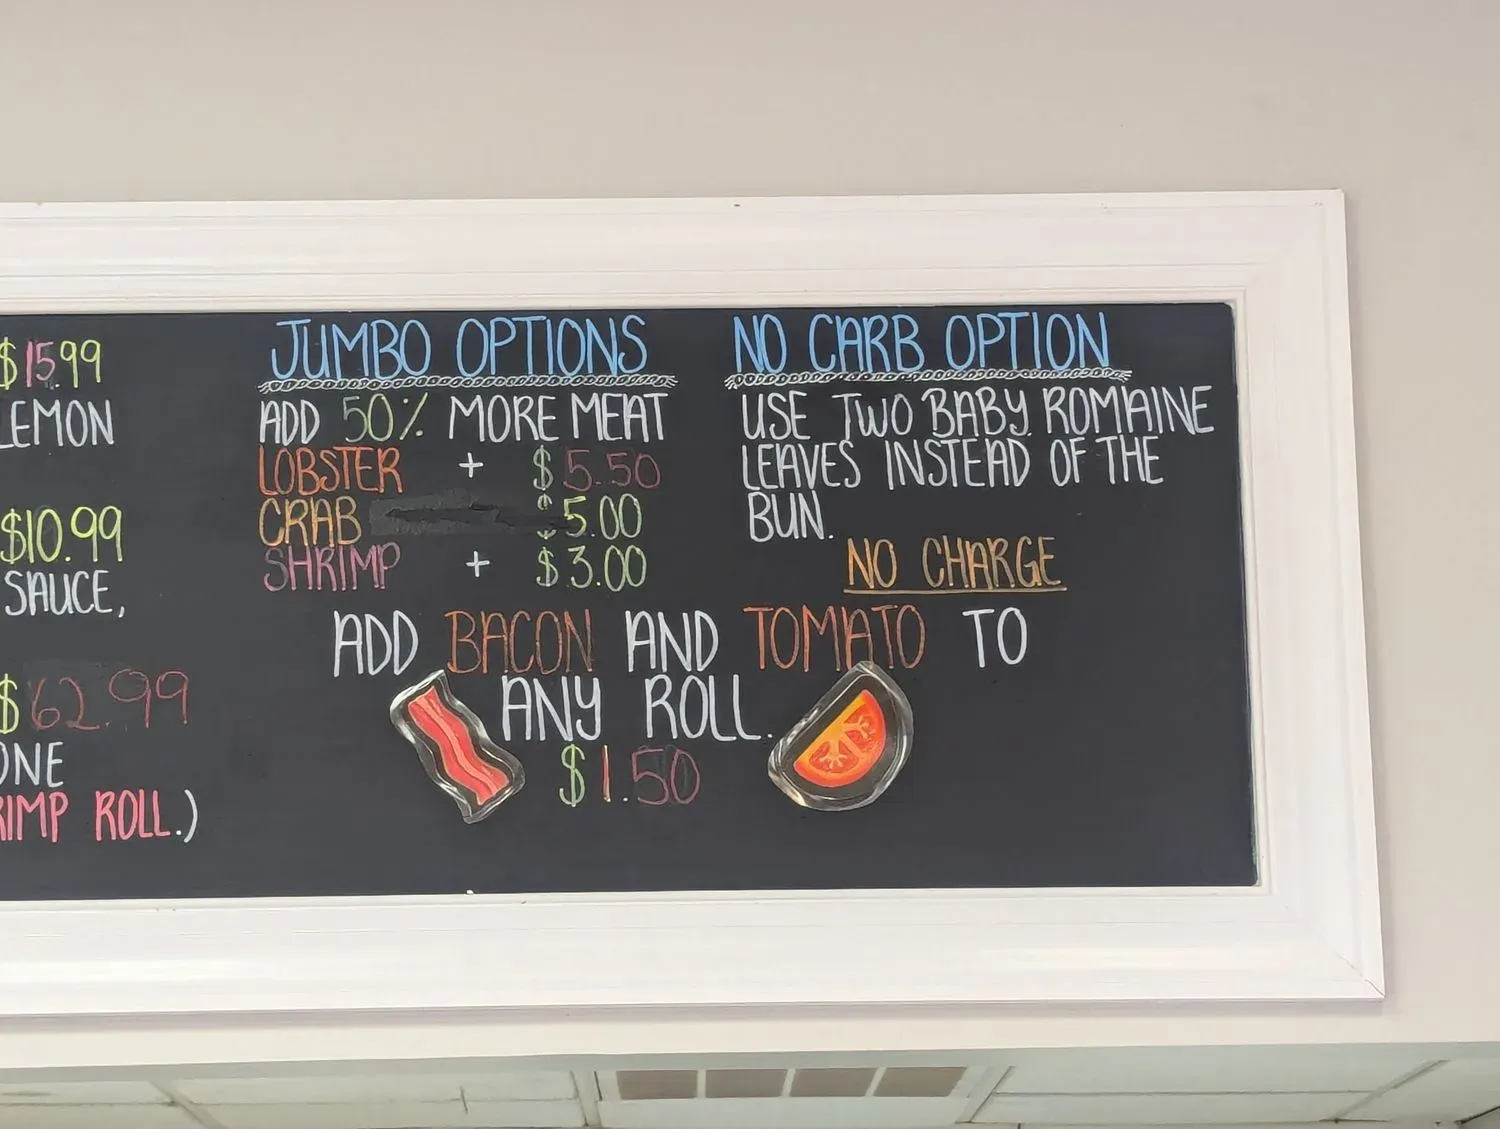 $15.99
LEMON
$10.99
SAUCE,
$62.99
ONE
RIMP ROLL.)
JUMBO OPTIONS
ADD 50% MORE MEAT
LOBSTER + $5.50
CRAB $5.00
SHRIMP + $3.00
NO CARB OPTION
USE TWO BABY ROMAINE
LEAVES INSTEAD OF THE
BUN.
NO CHARGE
ADD BACON AND TOMATO TO
ANY ROLL.
$1.50